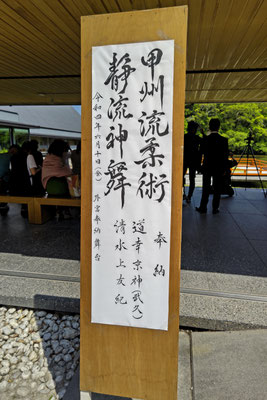 甲州流柔術
静流神舞
奉納
道幸京神(武久)
清水上友紀
令和四年六月十日(金)